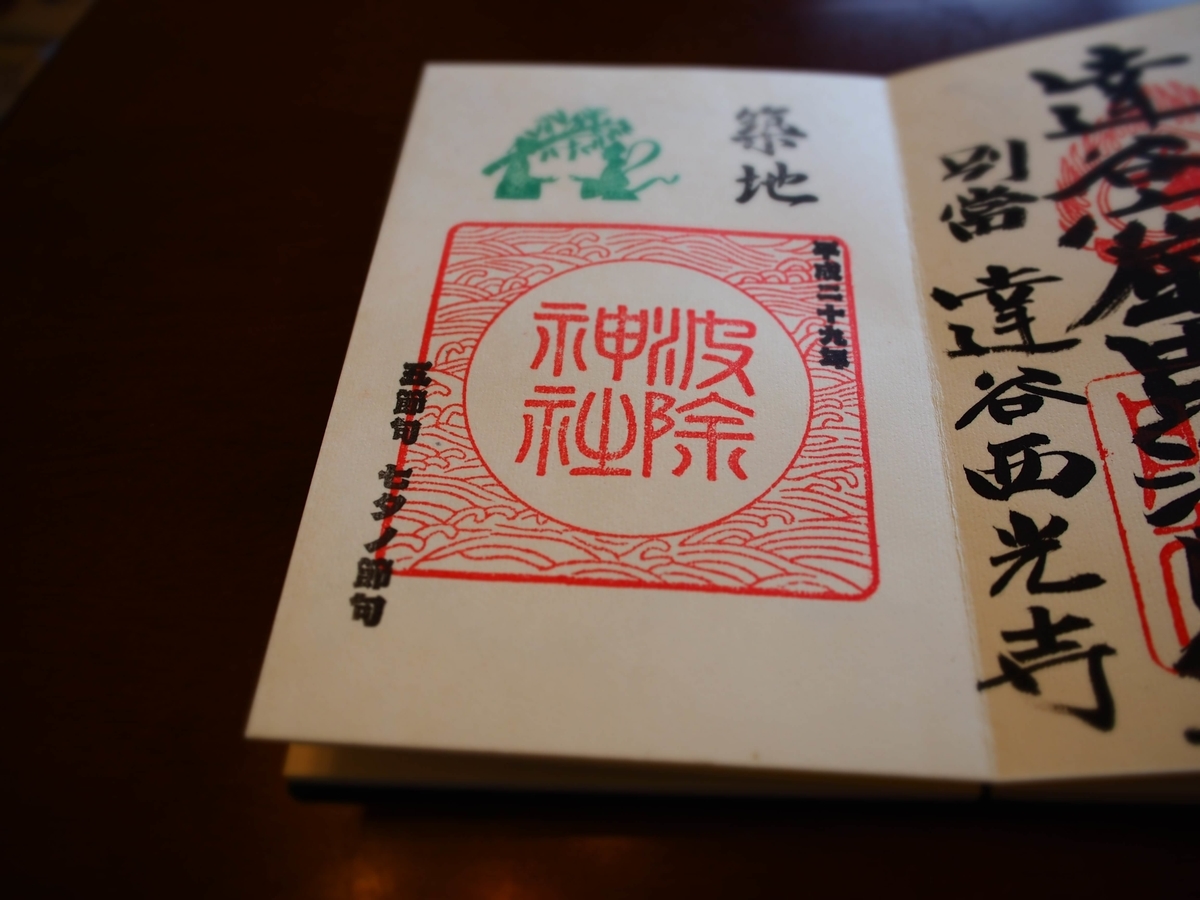 達谷窟毘沙
別當 達谷西光寺
築地
平成二十九年
波除
神社
五節句 七夕ノ節句